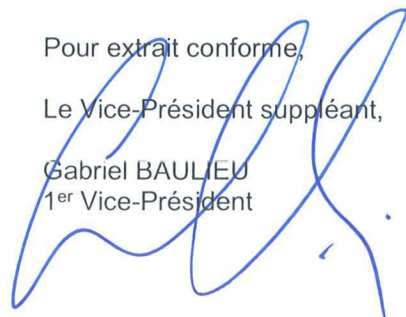 Pour extrait conforme,
Le Vice-Président suppléant,
Gabriel BAULIEU
1er Vice-Président